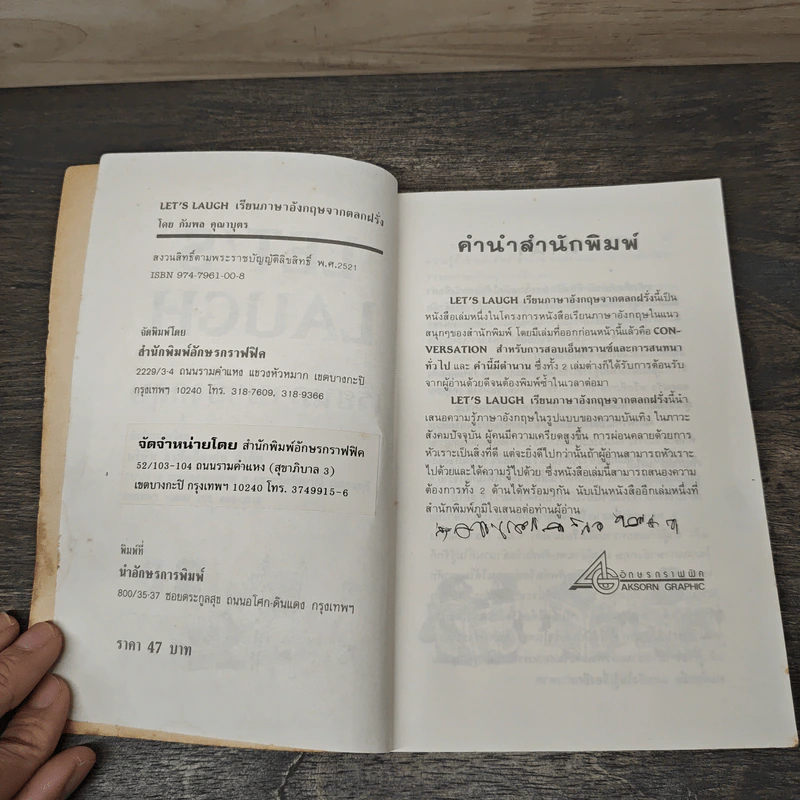 LET'S LAUGH เรียนภาษาอังกฤษจากตลกฝรั่ง
โดย กัมพล คุณาบุตร
สงวนสิทธิ์ตามพระราชบัญญัติลิขสิทธิ์ พ.ศ.2521
ISBN 974-7961-00-8
จัดพิมพ์โดย
สำนักพิมพ์อักษรกราฟฟิค
2229/3-4 ถนนรามคำแหง แขวงหัวหมาก เขตบางกะปิ
กรุงเทพฯ 10240 โทร. 318-7609, 318-9366
จัดจำหน่ายโดย สำนักพิมพ์อักษรกราฟฟิค
52/103-104 ถนนรามคำแหง (สุขาภิบาล 3)
เขตบางกะปิ กรุงเทพฯ 10240 โทร. 3749915-6
พิมพ์ที่
นำอักษรการพิมพ์
800/35-37 ซอยตระกูลสุข ถนนอโศก-ดินแดง กรุงเทพฯ
ราคา 47 บาท
คำนำสำนักพิมพ์
LET'S LAUGH เรียนภาษาอังกฤษจากตลกฝรั่งนี้เป็น
หนังสือเล่มหนึ่งในโครงการหนังสือเรียนภาษาอังกฤษในแนว
สนุกๆของสำนักพิมพ์ โดยมีเล่มที่ออกก่อนหน้านี้แล้วคือ CON-
VERSATION สำหรับการสอบเอ็นทรานซ์และการสนทนา
ทั่วไป และ คำนี้มีตำนาน ซึ่งทั้ง 2 เล่มต่างก็ได้รับการต้อนรับ
จากผู้อ่านด้วยดีจนต้องพิมพ์ซ้ำในเวลาต่อมา
LET'S LAUGH เรียนภาษาอังกฤษจากตลกฝรั่งนี้นำ
เสนอความรู้ภาษาอังกฤษในรูปแบบของความบันเทิง ในภาวะ
สังคมปัจจุบัน ผู้คนมีความเครียดสูงขึ้น การผ่อนคลายด้วยการ
หัวเราะเป็นสิ่งที่ดี แต่จะยิ่งดีไปกว่านั้นถ้าผู้อ่านสามารถหัวเราะ
ไปด้วยและได้ความรู้ไปด้วย ซึ่งหนังสือเล่มนี้สามารถสนองความ
ต้องการทั้ง 2 ด้านได้พร้อมๆกัน นับเป็นหนังสืออีกเล่มหนึ่งที่
สำนักพิมพ์ภูมิใจเสนอต่อท่านผู้อ่าน
อักษรกราฟฟิค
AKSORN GRAPHIC